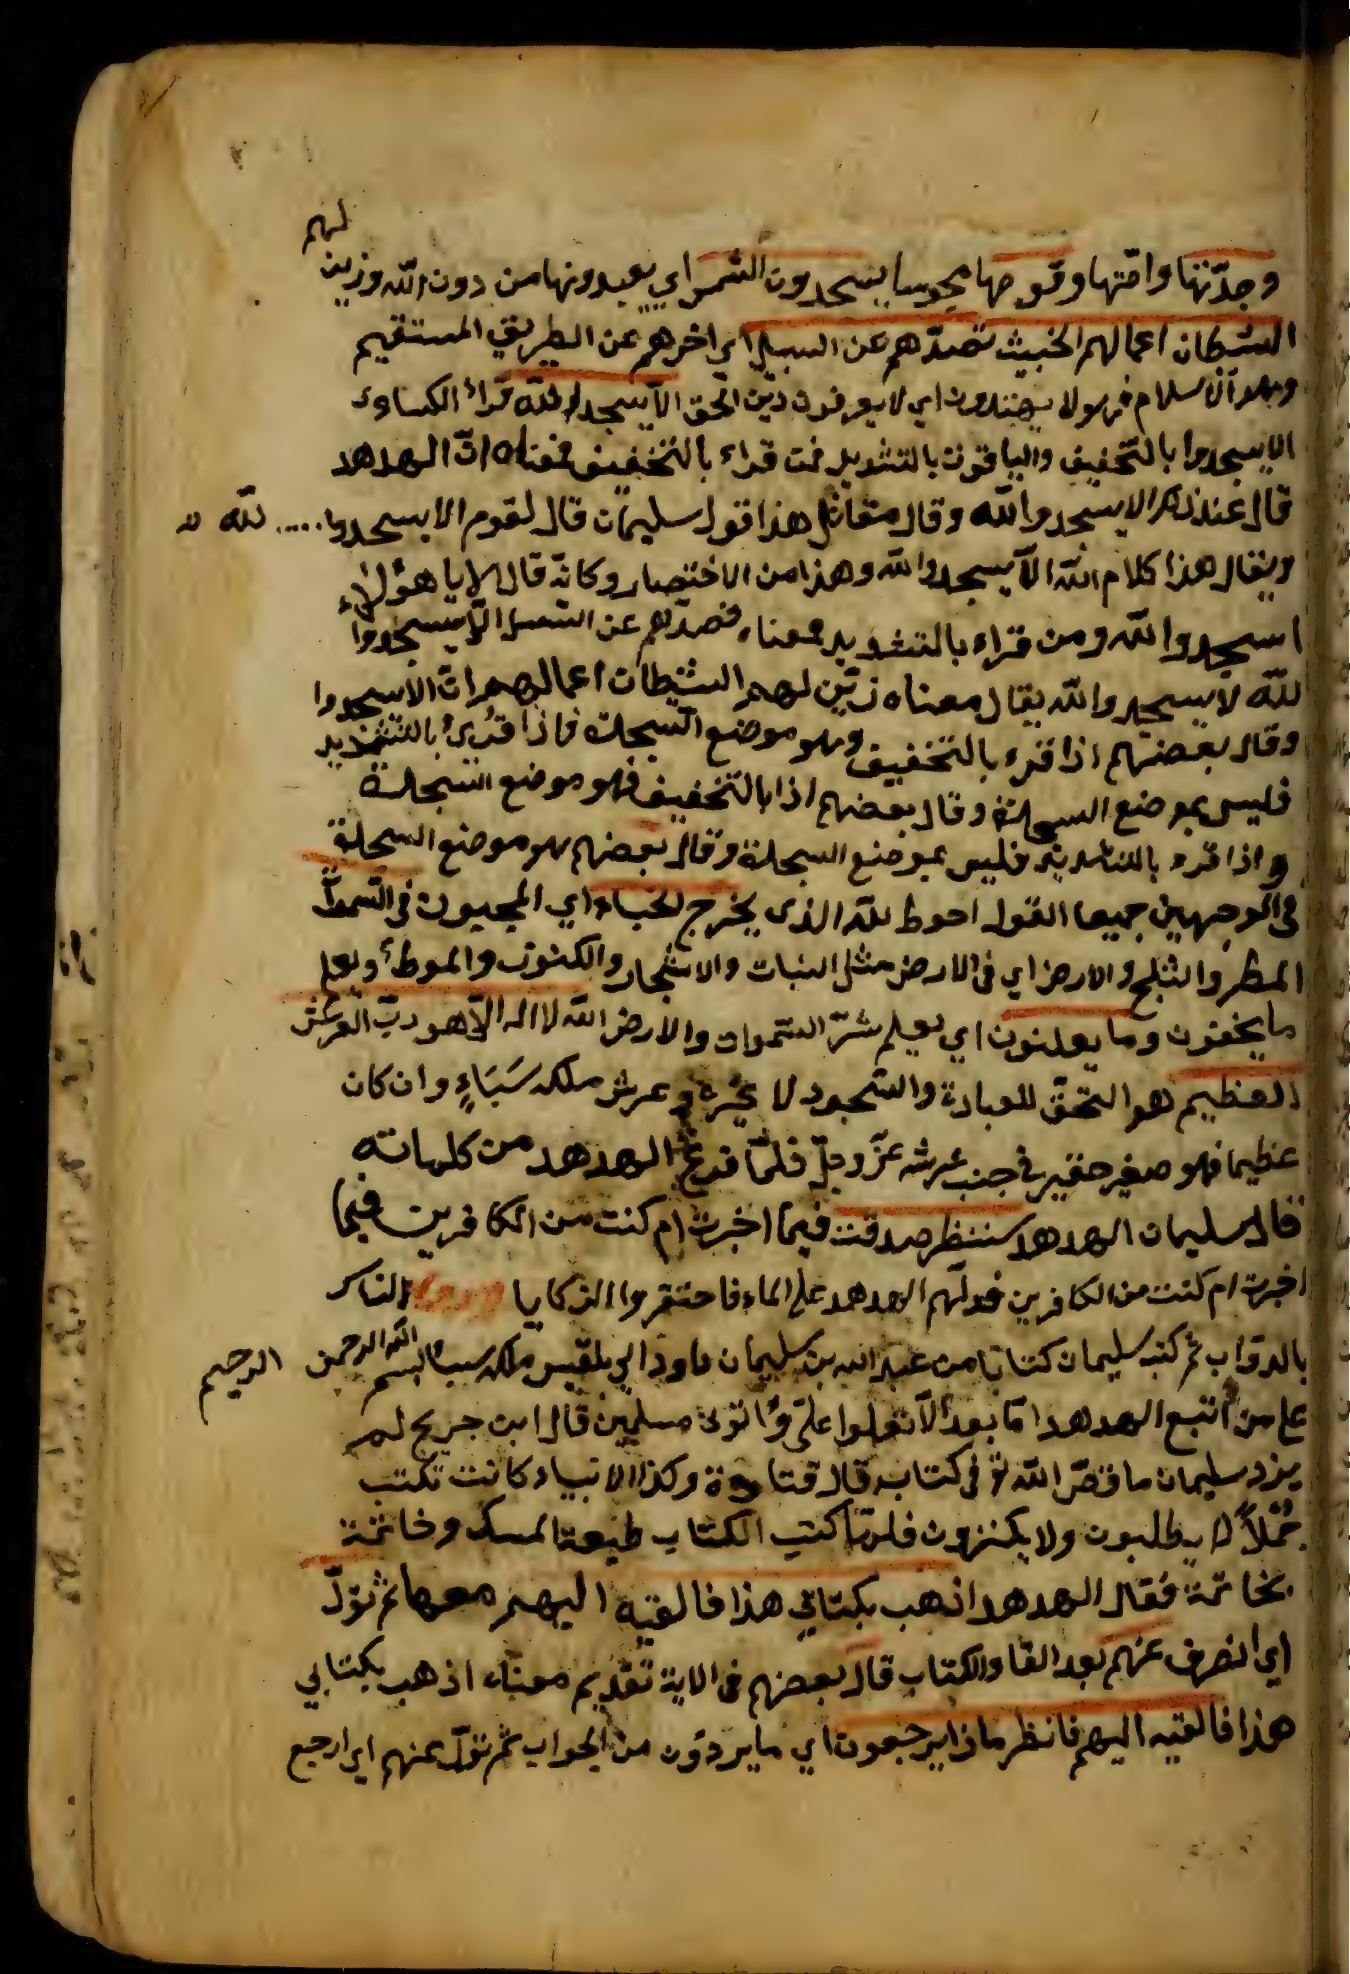 لهم
وجدّتها وامّتها وقومها مجوسا يسجدون الشمس اي يعبدونها من دون الله وزين
الشيطان اعمالهم الخبيث تصدّهم عن السبيل اي اخرهم عن الطريق المستقيم
وهو الاسلام فهم لا يهتدون اي لا يعرفون دين الحق الاّ يسجدوا لله قرأ الكساءى
الا يسجدوا بالتّخفيف والباقون بالتشديد فمن قراء بالتّخفيف فمعناه انّ الهدهد
قال عند ذلك الا يسجدو الله وقال مقاتل هذا قول سليمان قال لقوم الا يسجدوا ..... لله
ويقال هذا كلام الله الاّ يسجدوا لله وهذا من الاختصار وكانه قال الا يا هؤلاء
اسجدوا لله ومن قراء بالتشديد معناه فصدّهم عن السبيل الاّ يسجدوا
لله لا يسجدو الله يقال معناه زيّن لهم الشيطان اعمالهم انّ الا يسجدوا
وقال بعضهم اذا قرء بالتخفيف وهو موضع السّجدة فاذا قرئ بالتّشديد
فليس بموضع السجدة وقال بعضهم اذا بالتّخفيف فهو موضع السّجدة
واذا قرء بالتشديد فليس بموضع السجدة وقال بعضهم هو موضع السجدة
فى الوجهين جميعا القول احوط لله الذى يخرج الخباء اي المجيبون فى السّموات
المطر والثلج والارض اي فى الارض مثل النبات والاشجار والكنوز والموطأ ويعلم
ما يخفون وما يعلنون اي يعلم سّر السّموات والارض الله لا اله الاّ هو ربّ العرش
العظيم هو التحقّ للعبادة والسّجود لا غيره و عرش ملكه سَبَاءٍ وان كان
عظيما فهو صغير حقير فى جنب عرشه عزّ وجلّ فلمّا فرغ الهدهد من كلماته
قال سليمان الهدهد سننظر صدقت فيما اخبرت ام كنت من الكافرين فيما
اخبرت ام كنت من الكافرين فدلّهم الهدهد على الماء فاحتقروا الركايا الناكر
بالدوّاب ثم كتب سليمان كتابا من عبد الله بن سليمان داود الي بلقيس ملكه سبأ بسم الله الرحمن الرحيم
على من اتبع الهدهد امّا بعد الاّ تعلوا علىّ وأتونى مسلمين قال ابن جريج لم
يزد سليمان ما قصّ الله فى كتابه قال قتادة وكذا الانبياء كانت تكتب
جُمَلاً لا يطلبون ولا يكثرون فلما كتب الكتاب طبعة المسك وخاتمة
بخاتمة فقال الهدهد اذهب بكتابي هذا فالقيه اليهم معها ثم تولّ
اي انصرف عنهم بعد القاء الكتاب قال بعضهم فى الاية تقديم معناه اذهب بكتابي
هذا فالقيه اليهم فانظر ماذا يرجعون اي ما يردّون من الجواب ثم تولّ عنهم اي ارجع